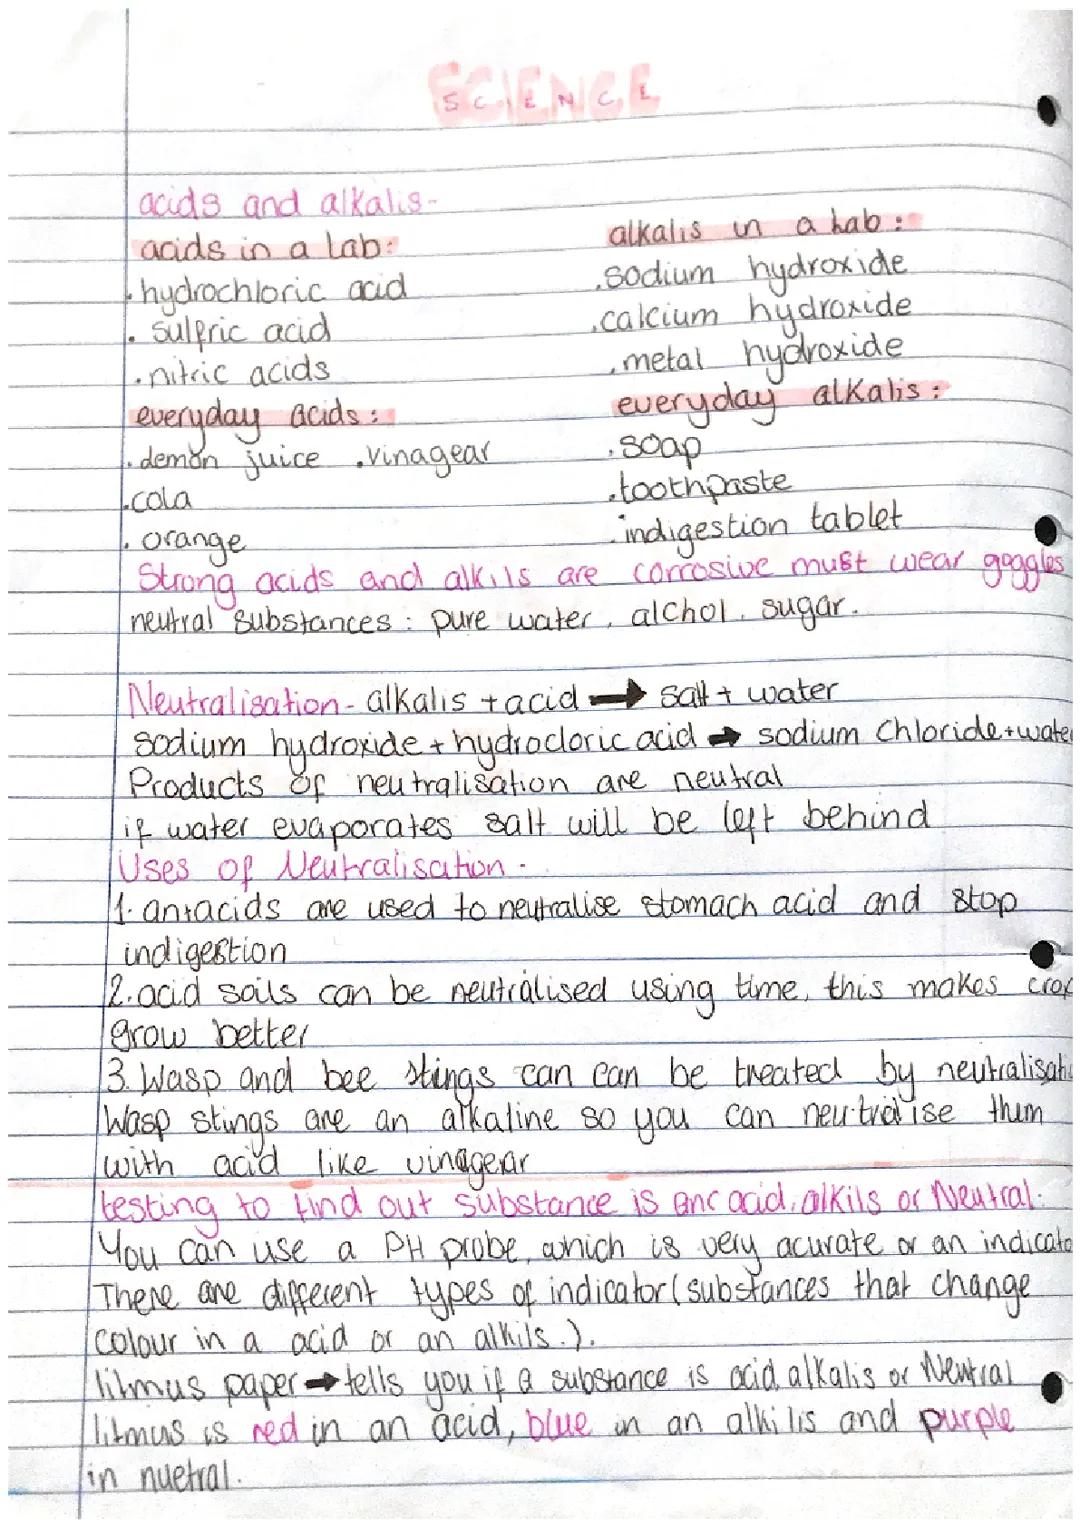 SCIENCE
acids and alkalis-
acids in a Lab:
. hydrochloric acid
. sulfric acid
. nitric acids
everyday acids:
. demon juice . vinagear
. cola
. orange
alkalis in a Lab:
. sodium hydroxide
. calcium hydroxide
. metal hydroxide
everyday alkalis:
. soap
. toothpaste
. indigestion tablet
Strong acids and alkils are corrosive must wear goggles
neutral substances: pure water, alchol, sugar.
Neutralisation- alkalis + acid → salt + water
sodium hydroxide + hydrocloric acid → sodium Chloride + water
Products of neutralisation are neutral
if water evaporates salt will be left behind
Uses of Neutralisation -
1. antacids are used to neutralise stomach acid and stop
indigestion
2. acid soils can be neutralised using time, this makes crop
grow better
3. Wasp and bee stings can can be treated by neutralisatio
Wasp stings are an alkaline so you can neutralise them
with acid like vinagear
testing to find out substance is anc acid, alkils or Neutral.
You can use a PH probe, which is very acurate or an indicato
There are different types of indicator (substances that change
colour in a acid or an alkils.).
litmus paper → tells you if a substance is acid, alkalis or Neutral
litmus is red in an acid, blue in an alkilis and purple
in nuetral.